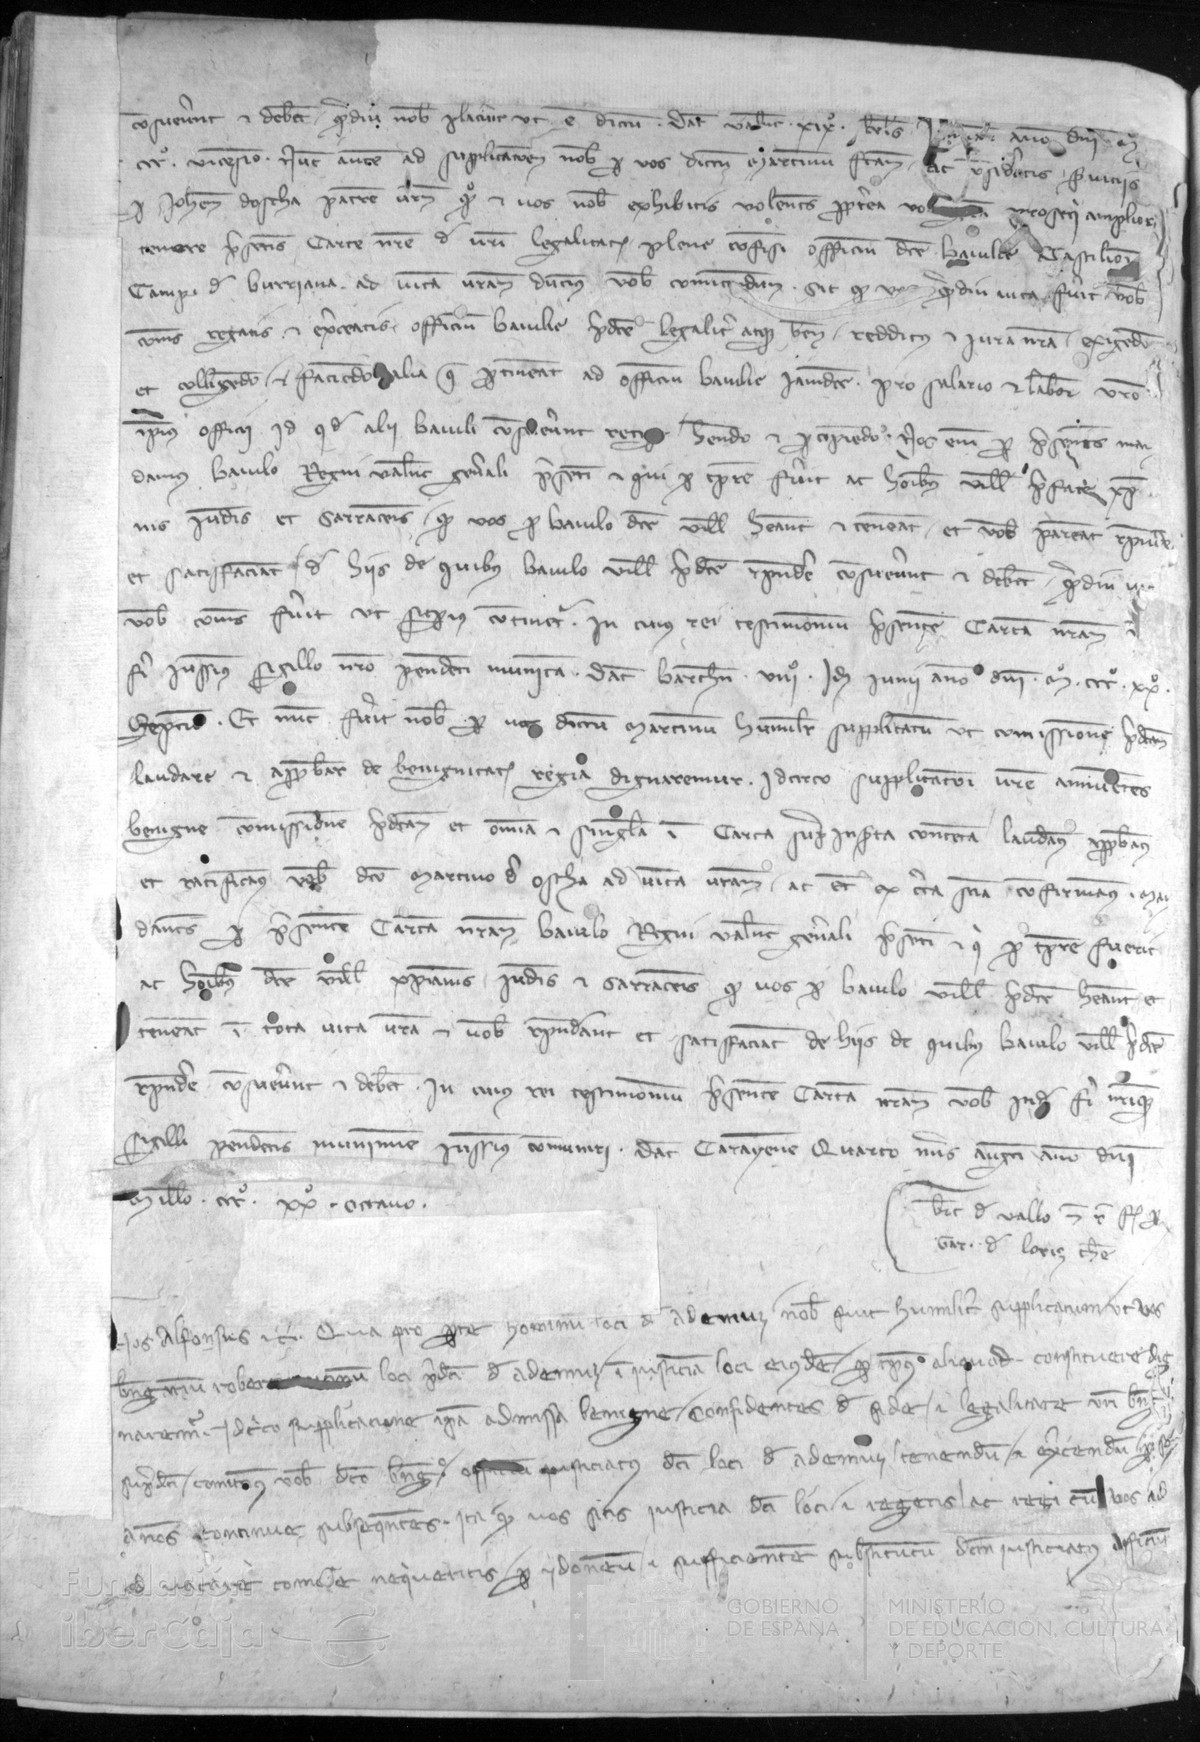 consueverunt et debent quamdiu nobis placuerit ut est dictum. Dat. Valencie .xix. kalendas anno domini .M.
CCC. vicesimo. Nunc autem ad supplicationem nobis per vos dictum Martinum factam ac consideratis serviciis
per Johannem doscha patrem vestrum et vos nobis exhibitis volentes propterea prosequi amplior
tenore presentis Carte nostre de vestri legalitate plene confisi officium dicte baiulie Castilionis
Campi de burriana ad vitam vestram ducimus vobis comittendum. Sic quod vos quamdiu vita fuerit vobis
comes regatis et exerceatis officium baiulie predicte legaliter atque bene redditus et iura nostra exigendo
et colligendo et faciendo alia que pertineant ad officium baiulie iamdicte. pro salario et labore vestro
ipsius officii id quod alii baiuli consueverunt recipere habendo et percipiendo. Nos enim per presentes man
damus baiulo Regni Valencie generali presenti et qui pro tempore fuerit ac hominibus ville prefate xp
nis iudeis et sarracenis quod vos pro baiulo dicte ville habeant et teneant et vobis pareant respondeant
et satisfaciant de hiis de quibus baiulo ville predicte respondere consueverunt et debent quamdiu
vobis comes fuerit ut superius continetur. In cuius rei testimonium presentem Cartam nostram
fieri iussimus sigillo nostro pendenti munitam. Dat. barchinone .viii. Idus iunii anno domini .M. CCC. xx.
Septimo. Et nunc fuerit nobis per vos dictum Martinum humiliter supplicatum ut comissionem predictam
laudare et approbare de benignitate regia dignaremur. Idcirco supplicationi vestre annuentes
benigne comissionem predictam et omnia et singula in Carta superius inserta contenta laudamus approbamus
et ratificamus vobis dicto Martino de oscha ad vitam vestram ac etiam ex certa scientia confirmamus. man
dantes per presentem Cartam nostram baiulo Regni Valencie generali presenti et qui pro tempore fuerit
ac hominibus dicte ville xpianis iudeis et sarracenis quod vos pro baiulo ville predicte habeant et
teneant in tota vita vestra et vobis respondeant et satisfaciant de hiis de quibus baiulo ville predicte
respondere consueverunt et debent. In cuius rei testimonium presentem Cartam nostram vobis inde fieri nostrique
sigilli pendentis munimine iussimus comuniri. Dat. Carayene Quarto nonas augusti anno domini
Millo. CCC. xx. octavo.
de vallo
Gar. de loriz
Nos Alfonsus etc. Quia pro parte hominum loci de ademuz nobis fuit humiliter supplicatum ut vos
loci predicti de ademuz in iusticiam loci eiusdem per tempus aliquod constituere dig
naremur. Idcirco supplicatione ipsa admissa benigne confidentes de fide et legalitate vestri
supradicti comittimus vobis dicto officium iusticiatus dicti loci de ademuz tenendum et exercendum per
annos continue subsequentes. Ita quod vos sitis iusticia dicti loci et regatis ac regi
vacare comode nequeritis per ydoneum et sufficientem substitutum dictum iusticiatus officium
Fundación
iberCaja
GOBIERNO
DE ESPAÑA
MINISTERIO
DE EDUCACIÓN, CULTURA
Y DEPORTE